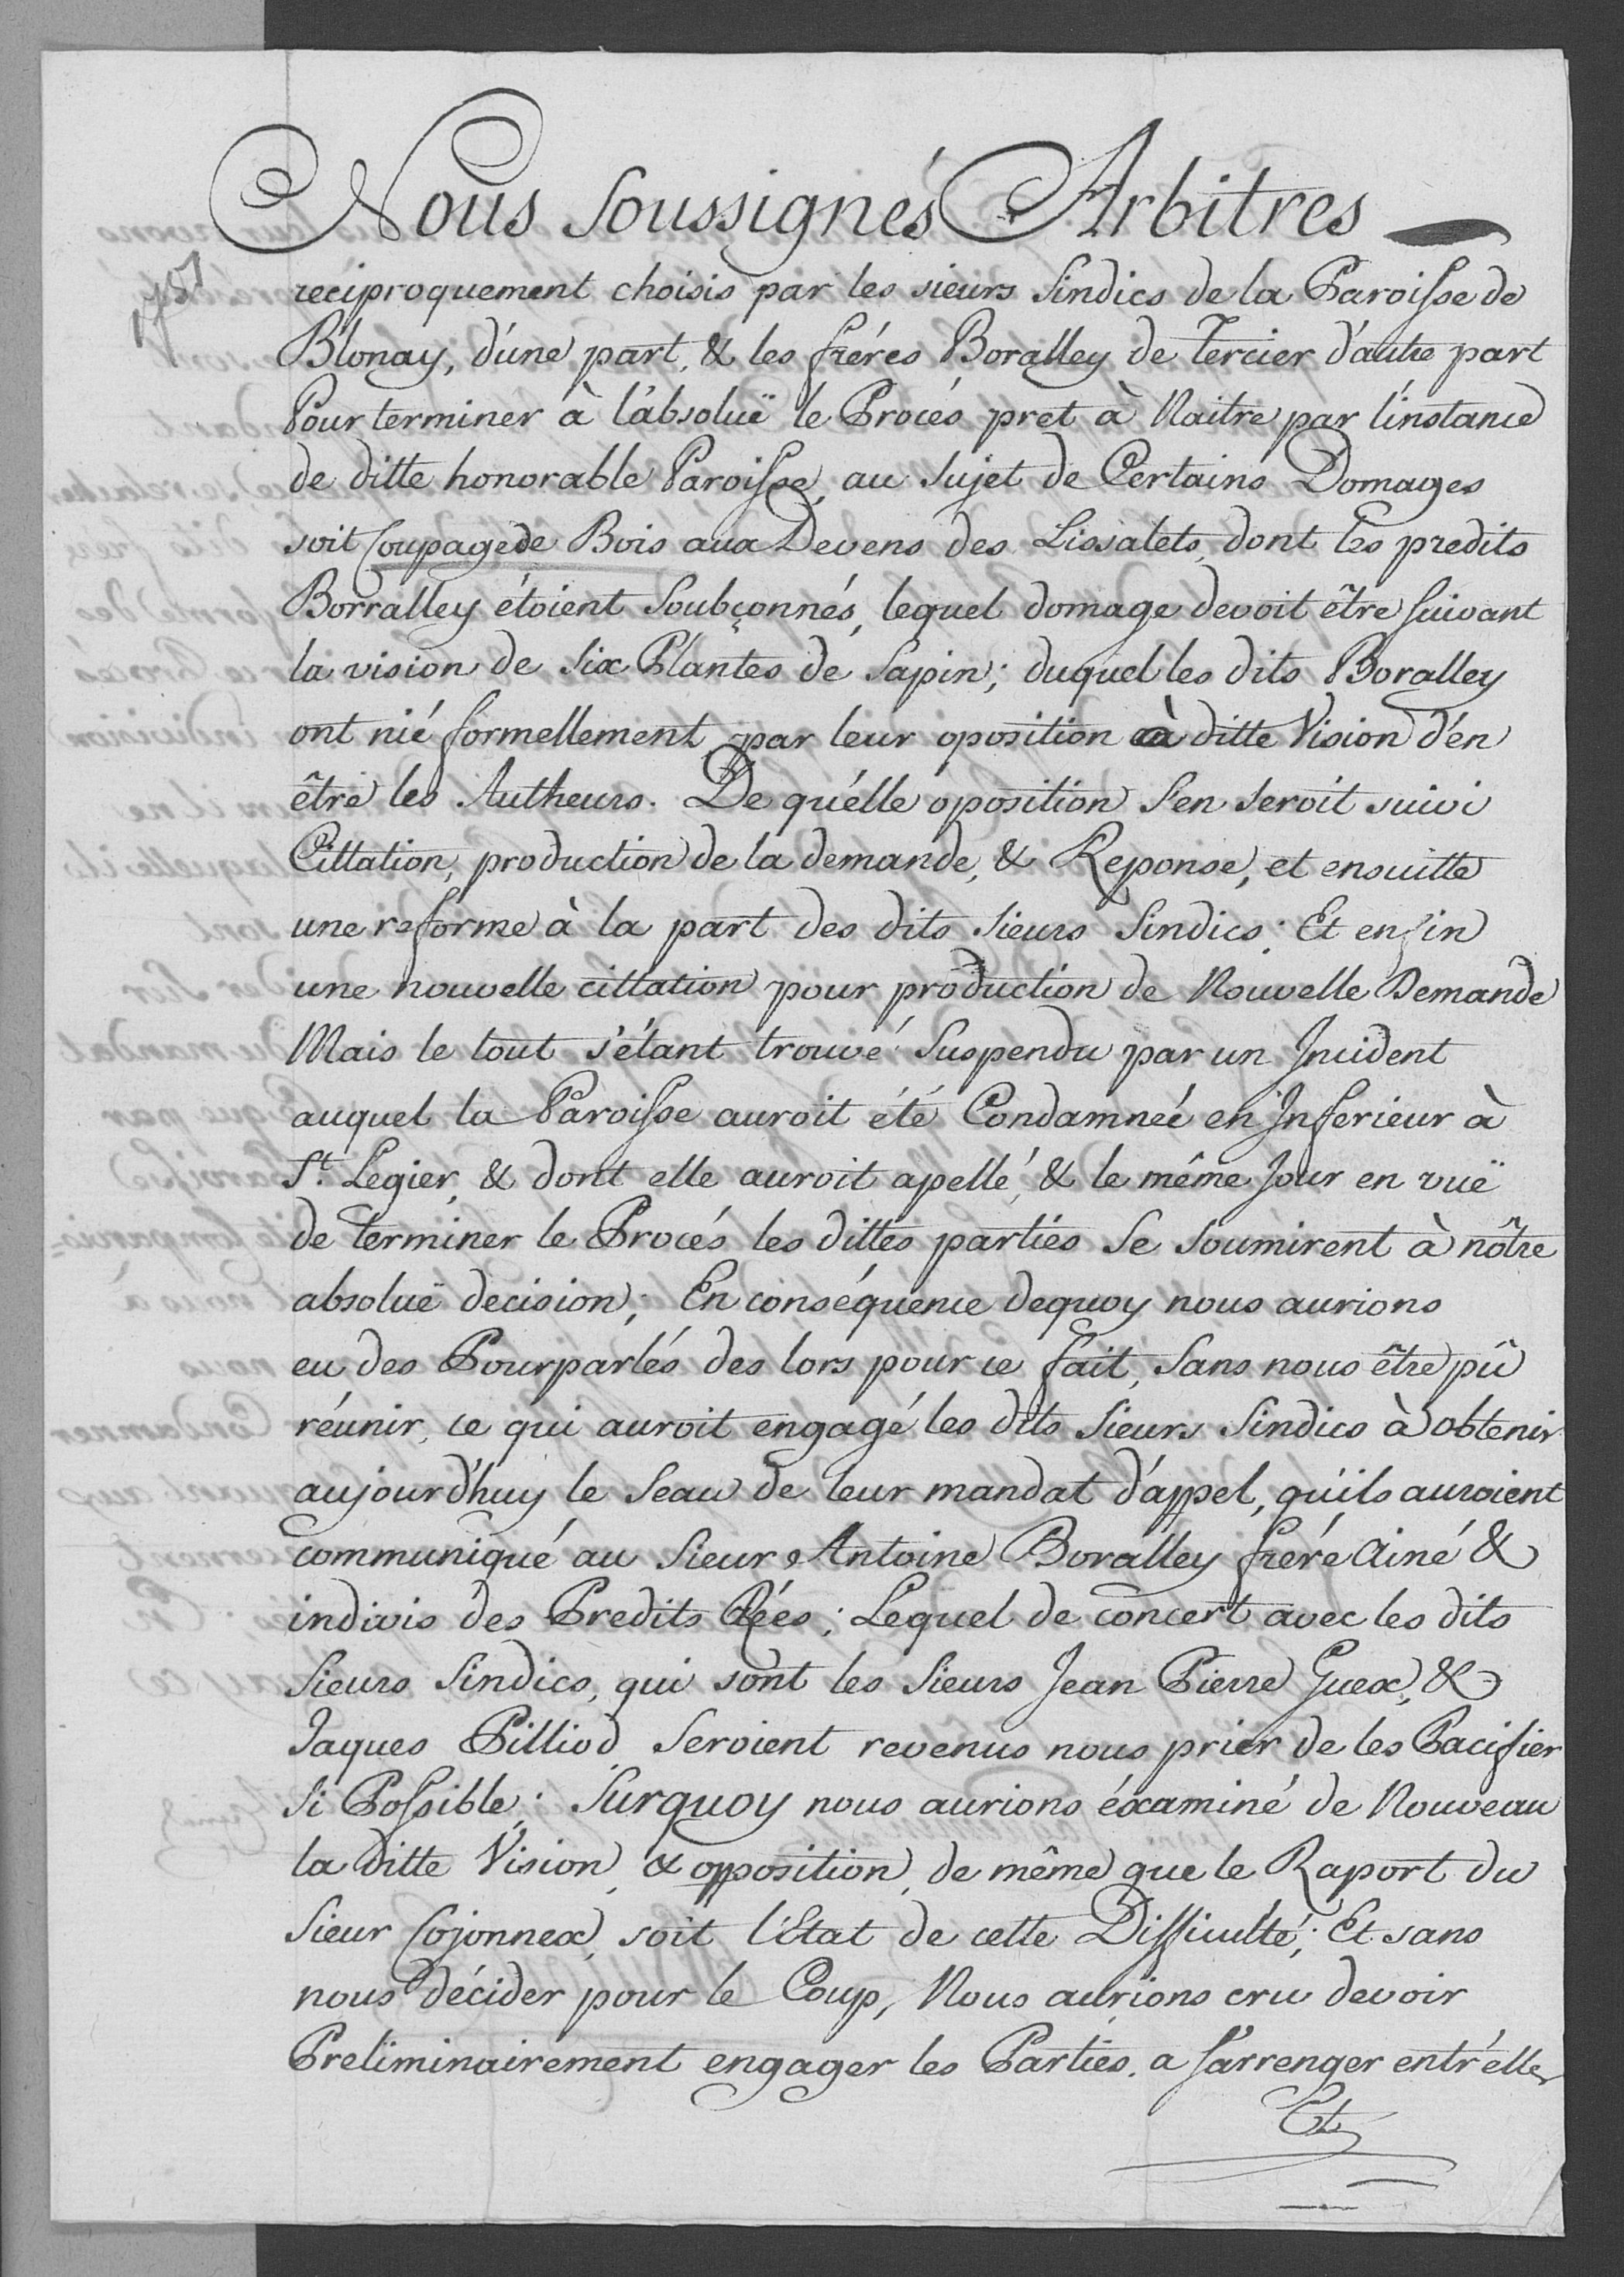 Nous Soussignés Arbitres
1757
reciproquement choisis par les sieurs Sindics de la Paroisse de
Blonay, d'une part, & les fréres Boralley de Tercier d'autre part
Pour terminer à l'absoluë le Procés pret à Naitre par l'instance
de ditte honorable Paroisse, au Sujet de Certains Domages
soit Coupage de Bois aux Devens des Lissalets, dont les predits
Borralley étoient Soubçonnés, lequel domage devoit être suivant
la vision de Six Plantes de Sapin; duquel les dits Boralley
ont nié formellement par leur oposition à ditte Vision d'en
être les Autheurs. De qu'elle oposition S'en seroit suivi
Cittation, production de la demande, & Reponse, et ensuitte
une reforme à la part des dits Sieurs Sindics: Et enfin
une nouvelle cittation pour production de Nouvelle Demande
Mais le tout s'étant trouvé Suspendu par un Incident
auquel la Paroisse auroit été Condamneé en Inferieur à
St. Legier, & dont elle auroit apellé, & le même Jour en vuë
de Terminer le Procés les dittes parties Se Soumirent à nôtre
absoluë decision; En conséquence dequoy nous aurions
eu des Pourparlés des lors pour ce fait, Sans nous être pû
réunir, ce qui auroit engagé les dits Sieurs Sindics à obtenir
aujourd'huy le Seau de leur mandat d'appel, qu'ils auroient
communiqué au Sieur Antoine Boralley frére Ainé &
indivis des Predits Rées; Lequel de concert avec les dits
Sieurs Sindics, qui sont les Sieurs Jean Pierre Guex, &
Jaques Pilliod Seroient revenus nous prier de les Pacifier
Si Possible: Surquoy nous aurions éxaminé de Nouveau
la ditte Vision, & opposition, de même que le Raport du
Sieur Cojonnex, soit l'Etat de cette Difficulté; Et sans
nous décider pour le Coup, Nous aurions cru devoir
Preliminairement engager les Parties. a S'arrenger entr'elles
Et